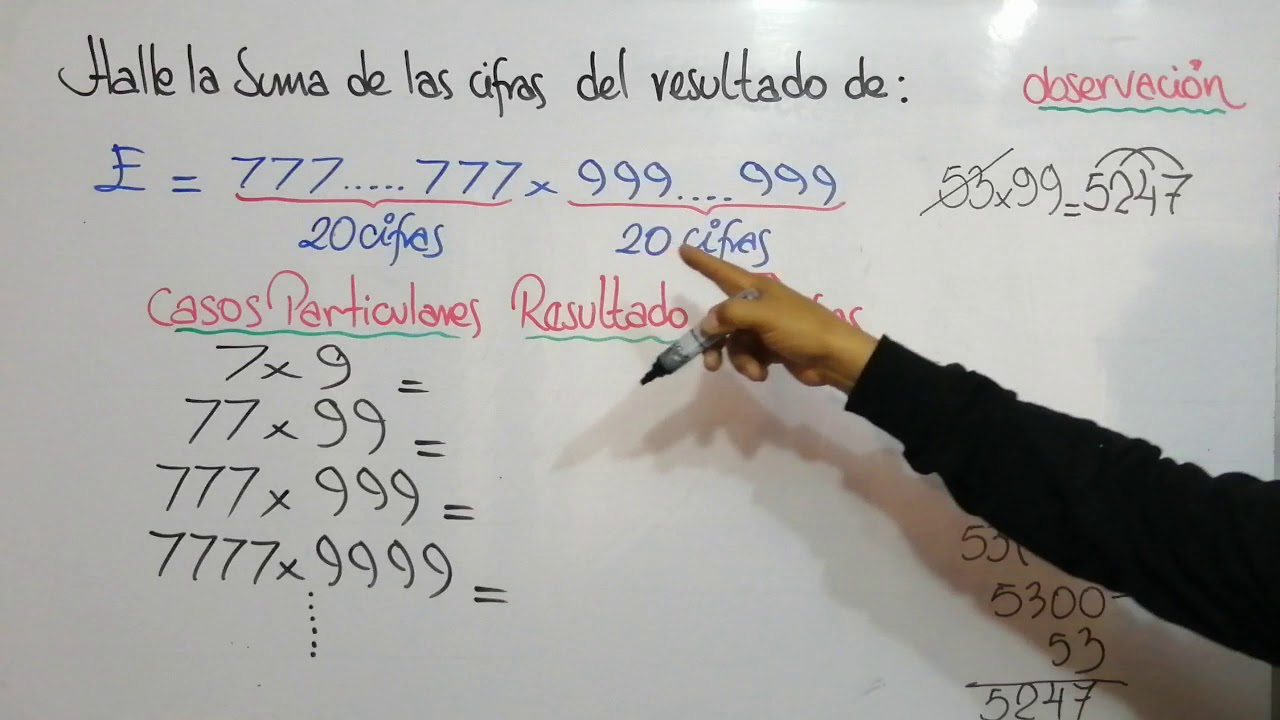 Halle la Suma de las cifras del resultado de:
observación
E = 777.....777 x 999....999
20 cifras
20 cifras
53 x 99 = 5247
Casos Particulares
Resultado
7 x 9 =
77 x 99 =
777 x 999 =
7777 x 9999 =
5300-
53
5247